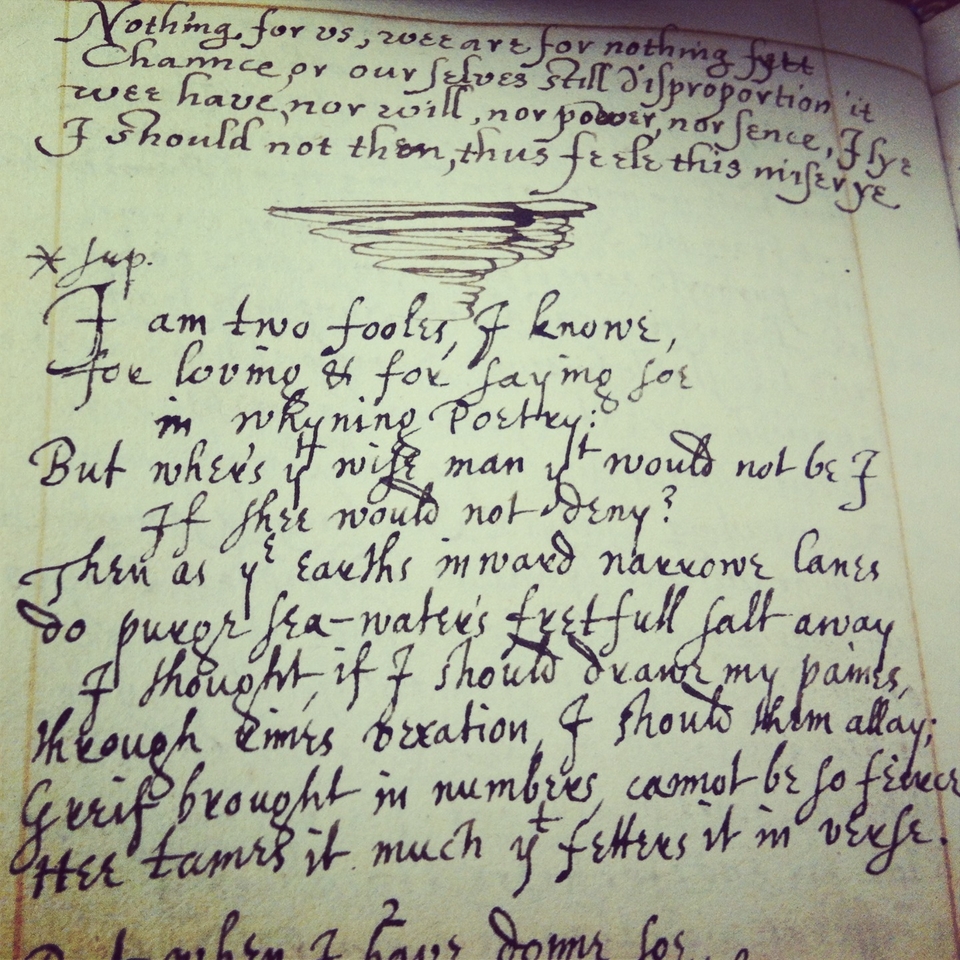 Nothing for vs, wee are for nothing fytt
Chaunce, or our selves still disproportion it
wee have, nor will, nor power, nor sence, I lye
I should not then, thus feele this miserye
* sup.
I am two fooles, I knowe,
for loving & for saying soe
in whyning Poetry:
But wher's yt wise man yt would not be I
If shee would not deny?
Then as ye earths inward narrowe lanes
do purge sea-water's fretfull salt away
I thought, if I should drawe my paines,
through rimes vexation, I should them allay;
Greif brought in numbers, cannot be so feirce
Hee tames it much yt fetters it in verse.
2
But when I have donne soe